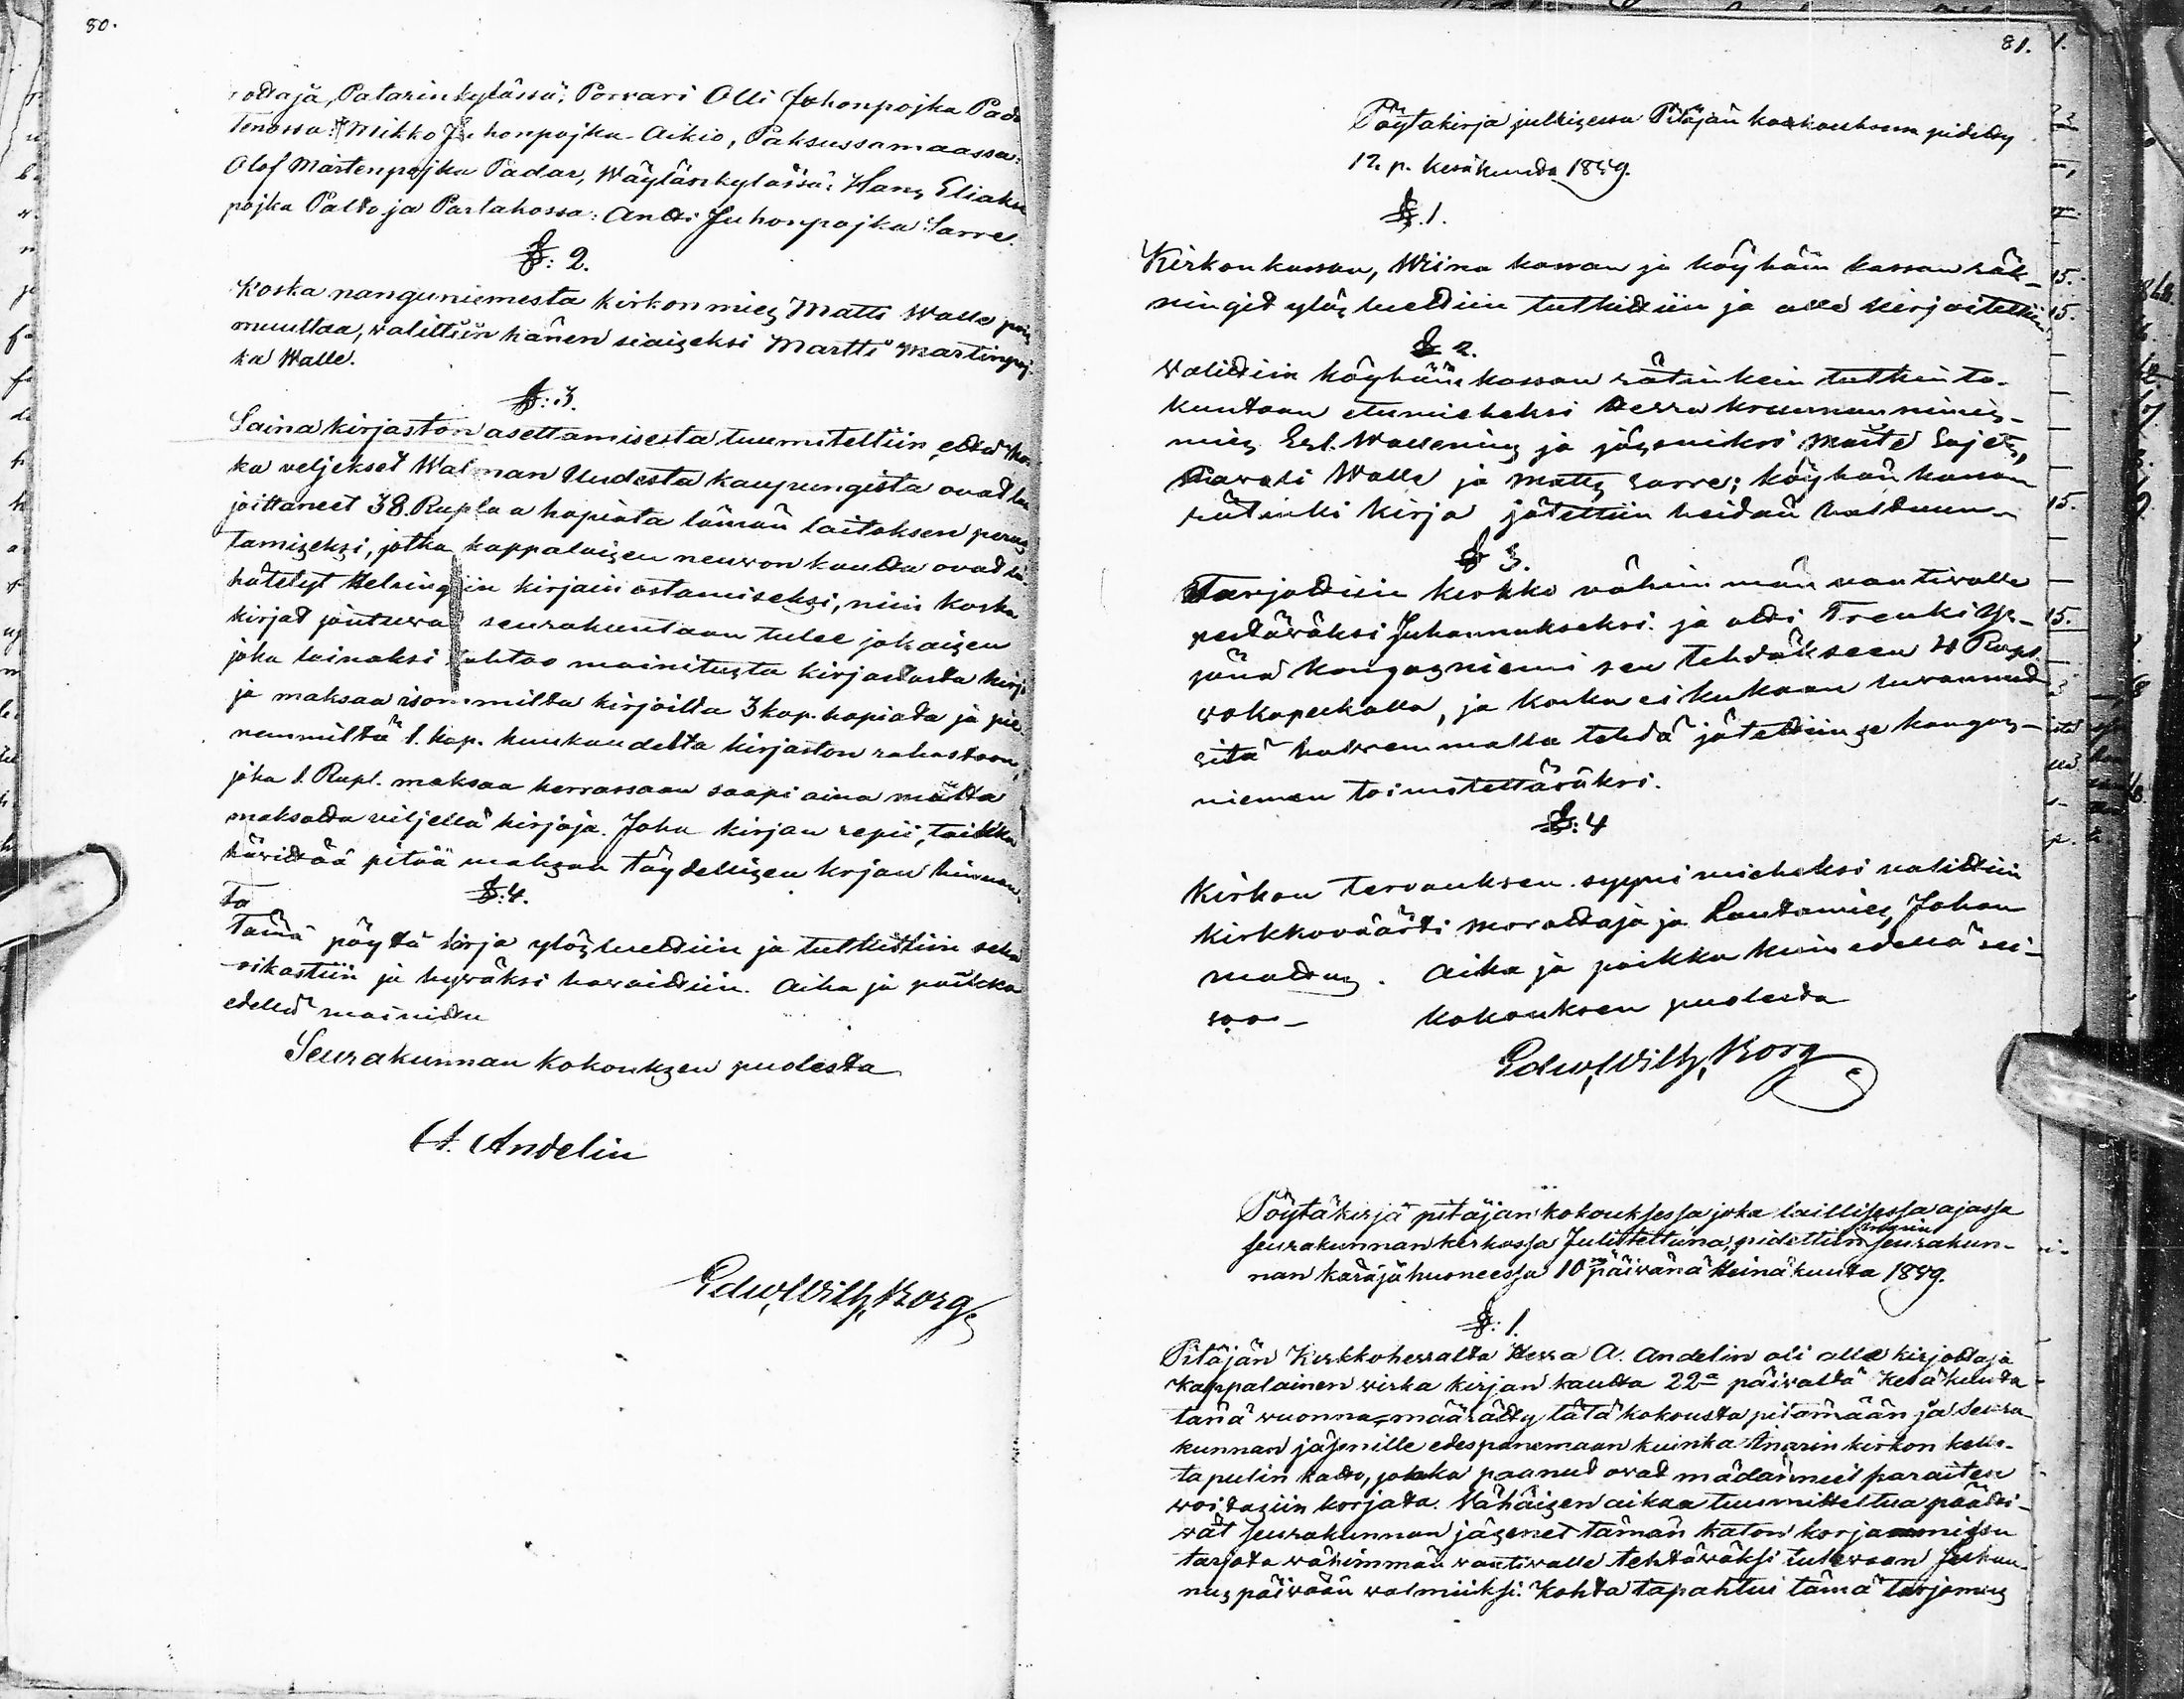 80.
Patarinkylässä: Porvari Olli Juhonpojka Pada
Tenossa: Mikko Juhonpojka Aikio, Paksussamaassa:
Olof Mårtenpojka Padar, Wäylänkylässä: Hans Eliakse
pojka Palto ja Partakossa: Antti Juhonpojka Sarre.
§: 2.
Koska nanguniemestä kirkonmies Matti Walle pois
muuttaa, walittiin hänen siaizeksi Martti Martinpoj-
ka Walle.
§: 3.
Lainakirjaston asettamisesta tuumiteltiin, että kos-
ka veljekset Walman Uudesta kaupungista ovat lu
joittaneet 38. Ruplaa hopiata tämän laitoksen perus
tamizeksi, jotka kappalaizen neuwon kautta ovat lä-
hätetyt Helsingiin kirjain ostamiseksi, niin koska
kirjat joutuwat seurakuntaan tulee jokaizen
joka lainaksi tahtoo mainitusta kirjastosta kirjo
ja maksaa isommilta kirjoilta 3 kop. hopiata ja pie-
nemmiltä 1. kop. kuukaudelta kirjaston rahastoon,
joka 1. Rupl. maksaa kerrassaan saapi aina mutta
maksotta viljellä kirjoja. Joka kirjan repii, taikka
häwittää pitää maksaa täydellizen kirjan hinnan-
ta
§: 4.
Tämä pöytä kirja ylösluettiin ja tutkittiin sekä
oikastiin ja hywäksi hawaittiin. Aika ja paikka
edellä mainittu
Seurakunnan kokouksen puolesta
A. Andelin
Edw. Wilh. Borg
81.
Pöytäkirja julkizessa Pitäjän kokouksessa pidetty
12. p. kesäkuuta 1859.
§. 1.
Kirkonkassan, Wiina kassan ja köyhäin kassan räk-
ningit ylös luettiin tutkittiin ja alle kirjoitettiin.
§ 2.
Walittiin köyhäin kassan rätinkein tutkinto-
kuntaan etumieheksi Herra kruunun nimis-
mies Erl. Wallenius ja jäseniksi Matte Sajets,
Paavali Walle ja Matts Sarre; köyhäin kassan
rätinki kirja jätettiin heidän haltuun.
§ 3.
Tarjottiin kirkko vähimmän vaativalle
pestäväksi Juhannukseksi ja otti Trenki Yr-
jänä kangasniemi sen tehdäkseen 4 Rupl.
wokopeekalla, ja koska ei kukaan luvannut
sitä halvemmalla tehdä jätettiin se kangas-
niemen toimitettäväksi.
§: 4
Kirkon tervauksen syyni mieheksi valittiin
kirkkoväärti Morottaja ja Lautamies Johan
mattus. Aika ja paikka kuin edellä sei-
soo— kokouksen puolesta
Edw. Wilh. Borg
Pöytäkirja pitäjän kokouksessa joka laillisessa ajassa
seurakunnan kirkossa Julistettuna, pidettiin Inarin seurakun-
nan käräjähuoneessa 10 päiwänä Heinäkuuta 1859.
§: 1.
Pitäjän Kirkkoherralta Herra A. Andelin oli alle kirjottaja
Kappalainen wirka kirjan kautta 22a päiwältä Kesäkuuta
tänä wuonna määrätty tätä kokousta pitämään ja seura-
kunnan jäsenille edespanemaan kuinka Inarin kirkon kello-
tapulin katto, jokka paanut ovat mädänneet paraiten
woitaziin korjata. Wähäizen aikaa tuumitteltua päätti-
wät seurakunnan jäsenet tämän katon korjaamissen
tarjota wähimmän waativalle tehtäwäksi tulewaan Juhan-
nus päiwään walmiiksi. Kohta tapahtui tämä tarjomus